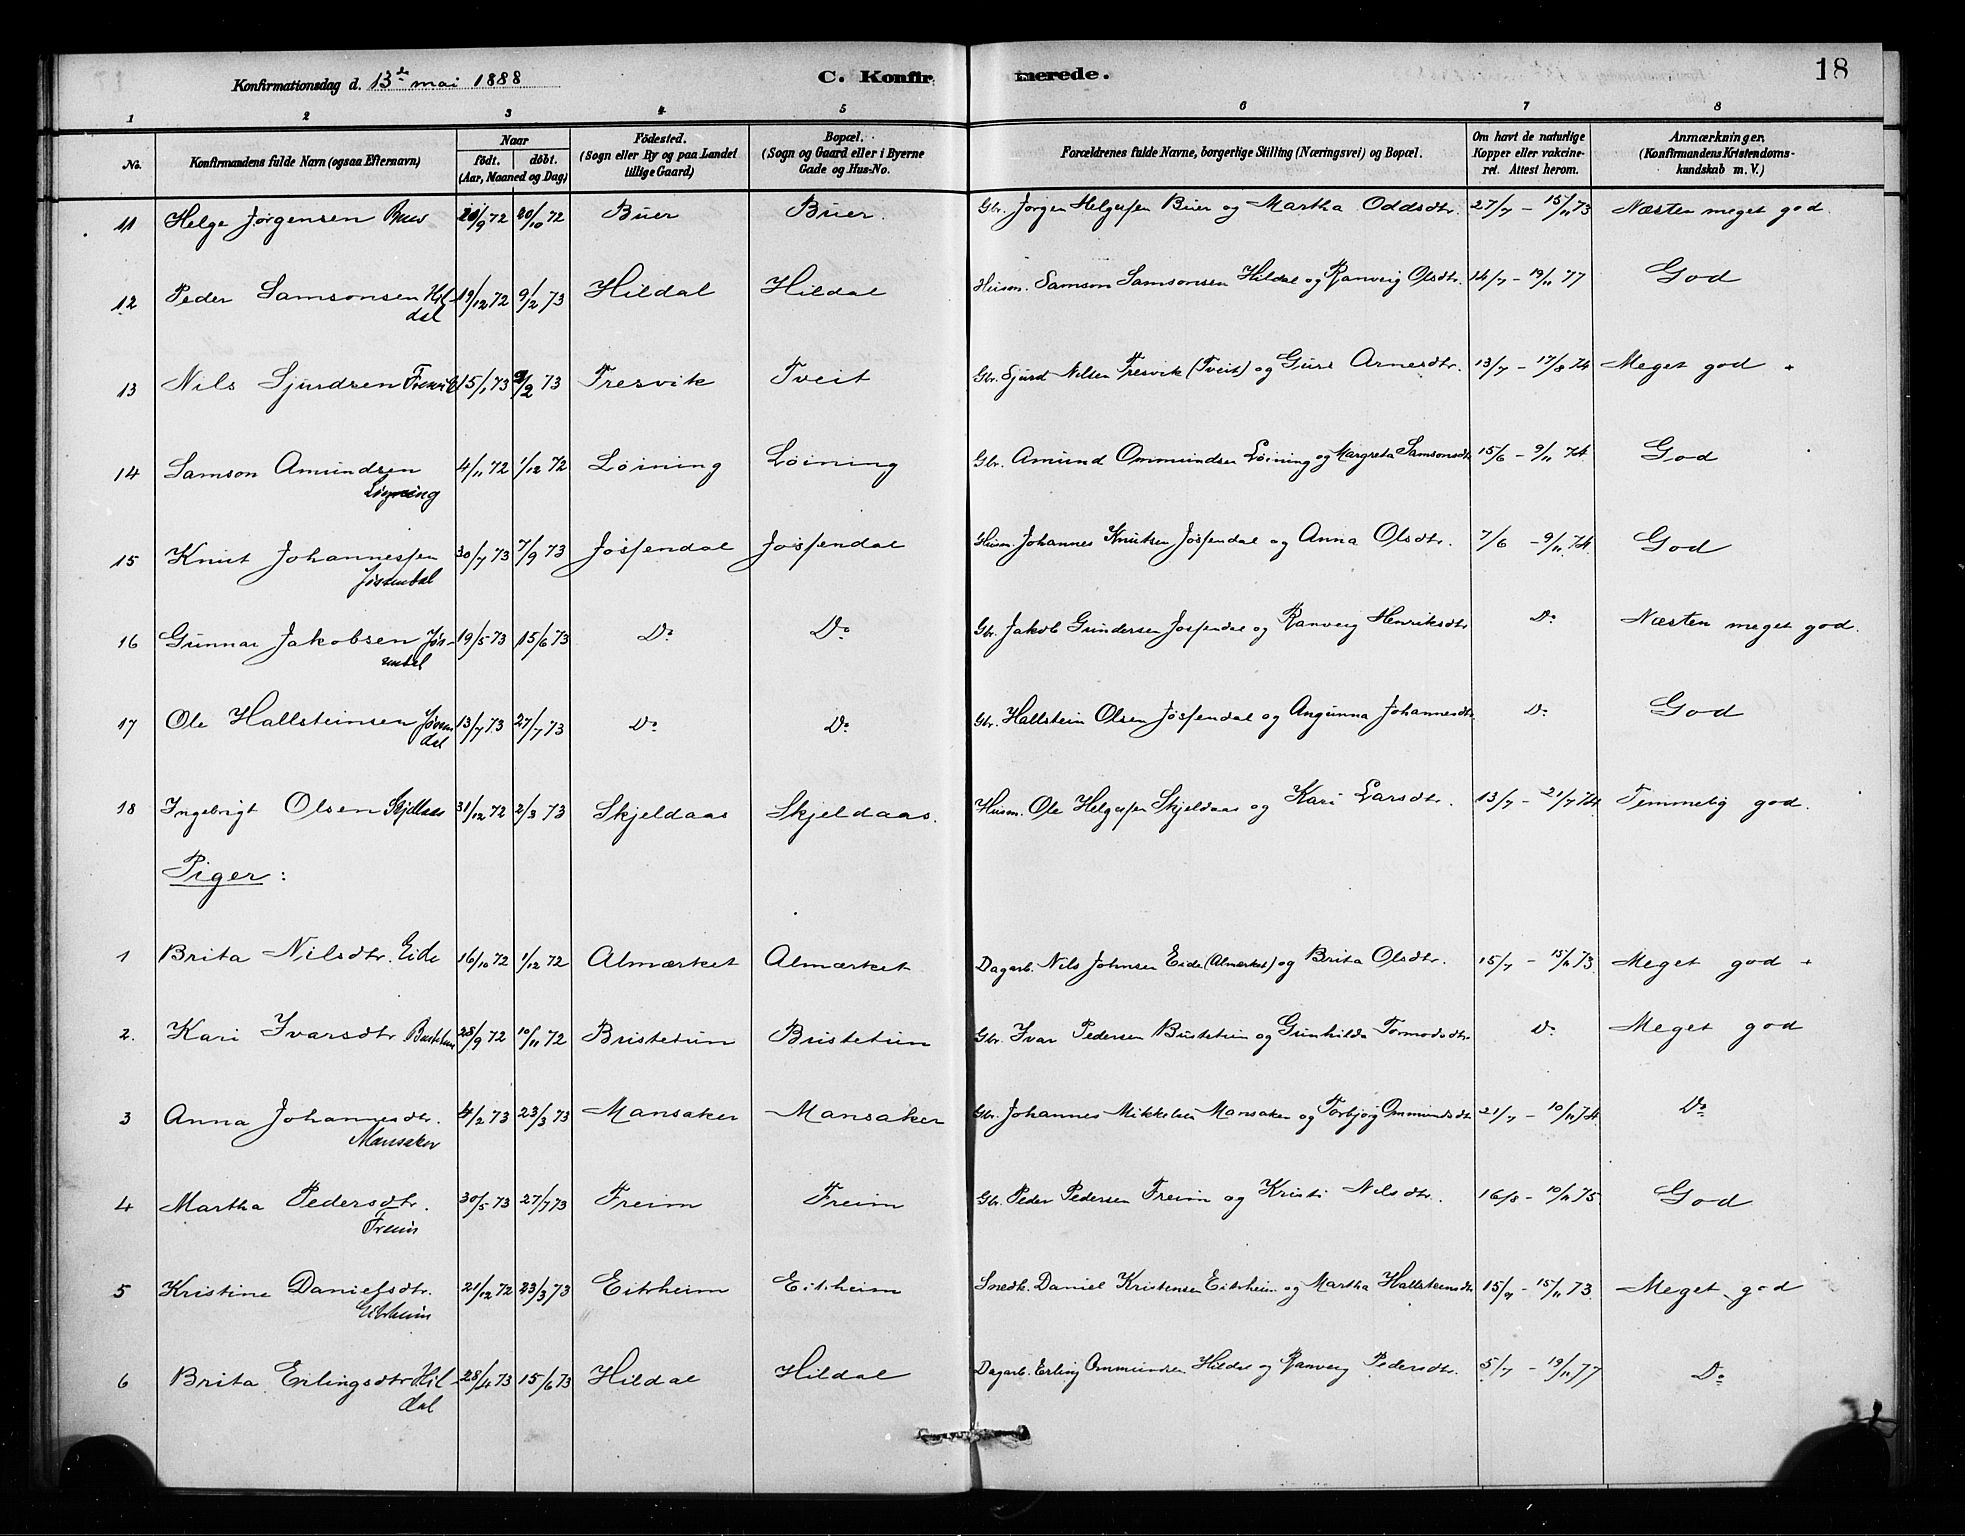 Konfirmationsdag d. 13de mai 1888 C. Konfirmerede. 18
1 2 3 4 5 6 7 8
No. Konfirmandens fulde Navn (ogsaa Efternavn) Naar födt. döbt. (Aar, Maaned og Dag) Födested. (Sogn eller By og paa Landet tillige Gaard) Bopæl. (Sogn og Gaard eller i Byerne Gade og Hus-No. Forældrenes fulde Navne, borgerlige Stilling (Næringsvei) og Bopæl. Om havt de naturlige Kopper eller vakcineret. Attest herom. Anmærkninger. (Konfirmandens Kristendomskundskab m. V.)
11 Helge Jörgensen Buer /9 72 20/10 72 Buer Buer. Gbr. Jörgen Helgesen Buer og Martha Oddsdtr. 27/7 – 15/11 73 Næsten meget god.
12 Peder Samsonsen Hildal 19/12 72 9/2 73 Hildal Hildal Husm. Samson Samsonsen Hildal og Ranveig Olsdtr. 14/7 – 19/11 77 God
13 Nils Sjurdsen Tresvik 15/1 73 /2 73 Tresvik Tveit Gbr. Sjurd Nilsen Tresvik (Tveit) og Guro Arnesdtr. 13/7 – 17/8 74 Meget god +
14 Samson Amundsen Löyning 4/11 72 1/12 72 Löining Löining Gbr. Amund Ommundsen Löining og Margreta Samsonsdtr 15/6 – 9/11 74. God
15 Knut Johannessen Jössendal 30/7 73 7/9 73 Jössendal Jössendal Husm. Johannes Knutsen Jössendal og Anna Olsdtr. 7/6 – 9/11 74 God
16 Gunnar Jakobsen Jössendal 19/5 73 15/6 73 Do Do Gbr. Jakob Gundersen Jössendal og Ranveig Henriksdtr Do Næsten meget god.
17 Ole Hallsteinsen Jössendal 13/7 73 27/7 73 Do Do Gbr. Hallstein Olsen Jössendal og Angunna Johannesdtr Do God
18 Ingebrigt Olsen Skjeldaas 31/12 72 2/3 73 Skjeldaas Skjeldaas. Husm. Ole Helgesen Skjeldaas og Kari Larsdtr. 13/7 – 21/7 74. Temmelig god.
Piger:
1 Brita Nilsdtr. Eide 16/10 72 1/12 72 Almærket Almærket Dagarb. Nils Johnsen Eide (Almærket) og Brita Olsdtr. 15/7 – 15/11 73. Meget god +
2. Kari Ivarsdtr Bustetun 28/9 72 10/11 72 Bustetun Bustetun Gbr. Ivar Pedersen Bustetun og Gunhilda Tormodsdtr. Do Meget god
3 Anna Johannesdtr. Mansaker 4/2 73 23/3 73 Mansaker Mansaker Gbr. Johannes Mikkelsen Mansaker og Torbjörg Ommundsdtr 21/7 – 10/11 74. Do
4 Martha Pedersdtr. Freim 30/5 73 27/7 73 Freim Freim Gbr. Peder Pedersen Freim og Kristi Nilsdtr. 16/8 – 10/11 75. God
5 Kristine Danielsdtr. Eitrheim 21/12 72 23/3 73 Eitrheim Eitrheim Snedk. Daniel Kristensen Eitrheim og Martha Hallsteinsdtr 15/7 – 15/11 73. Meget god
6 Brita Erlingsdtr Hildal 28/4 73 15/6 73 Hildal Hildal Dagarb. Erling Ommundsen Hildal og Ranveig Pedersdtr. 5/7 – 19/11 77 Do